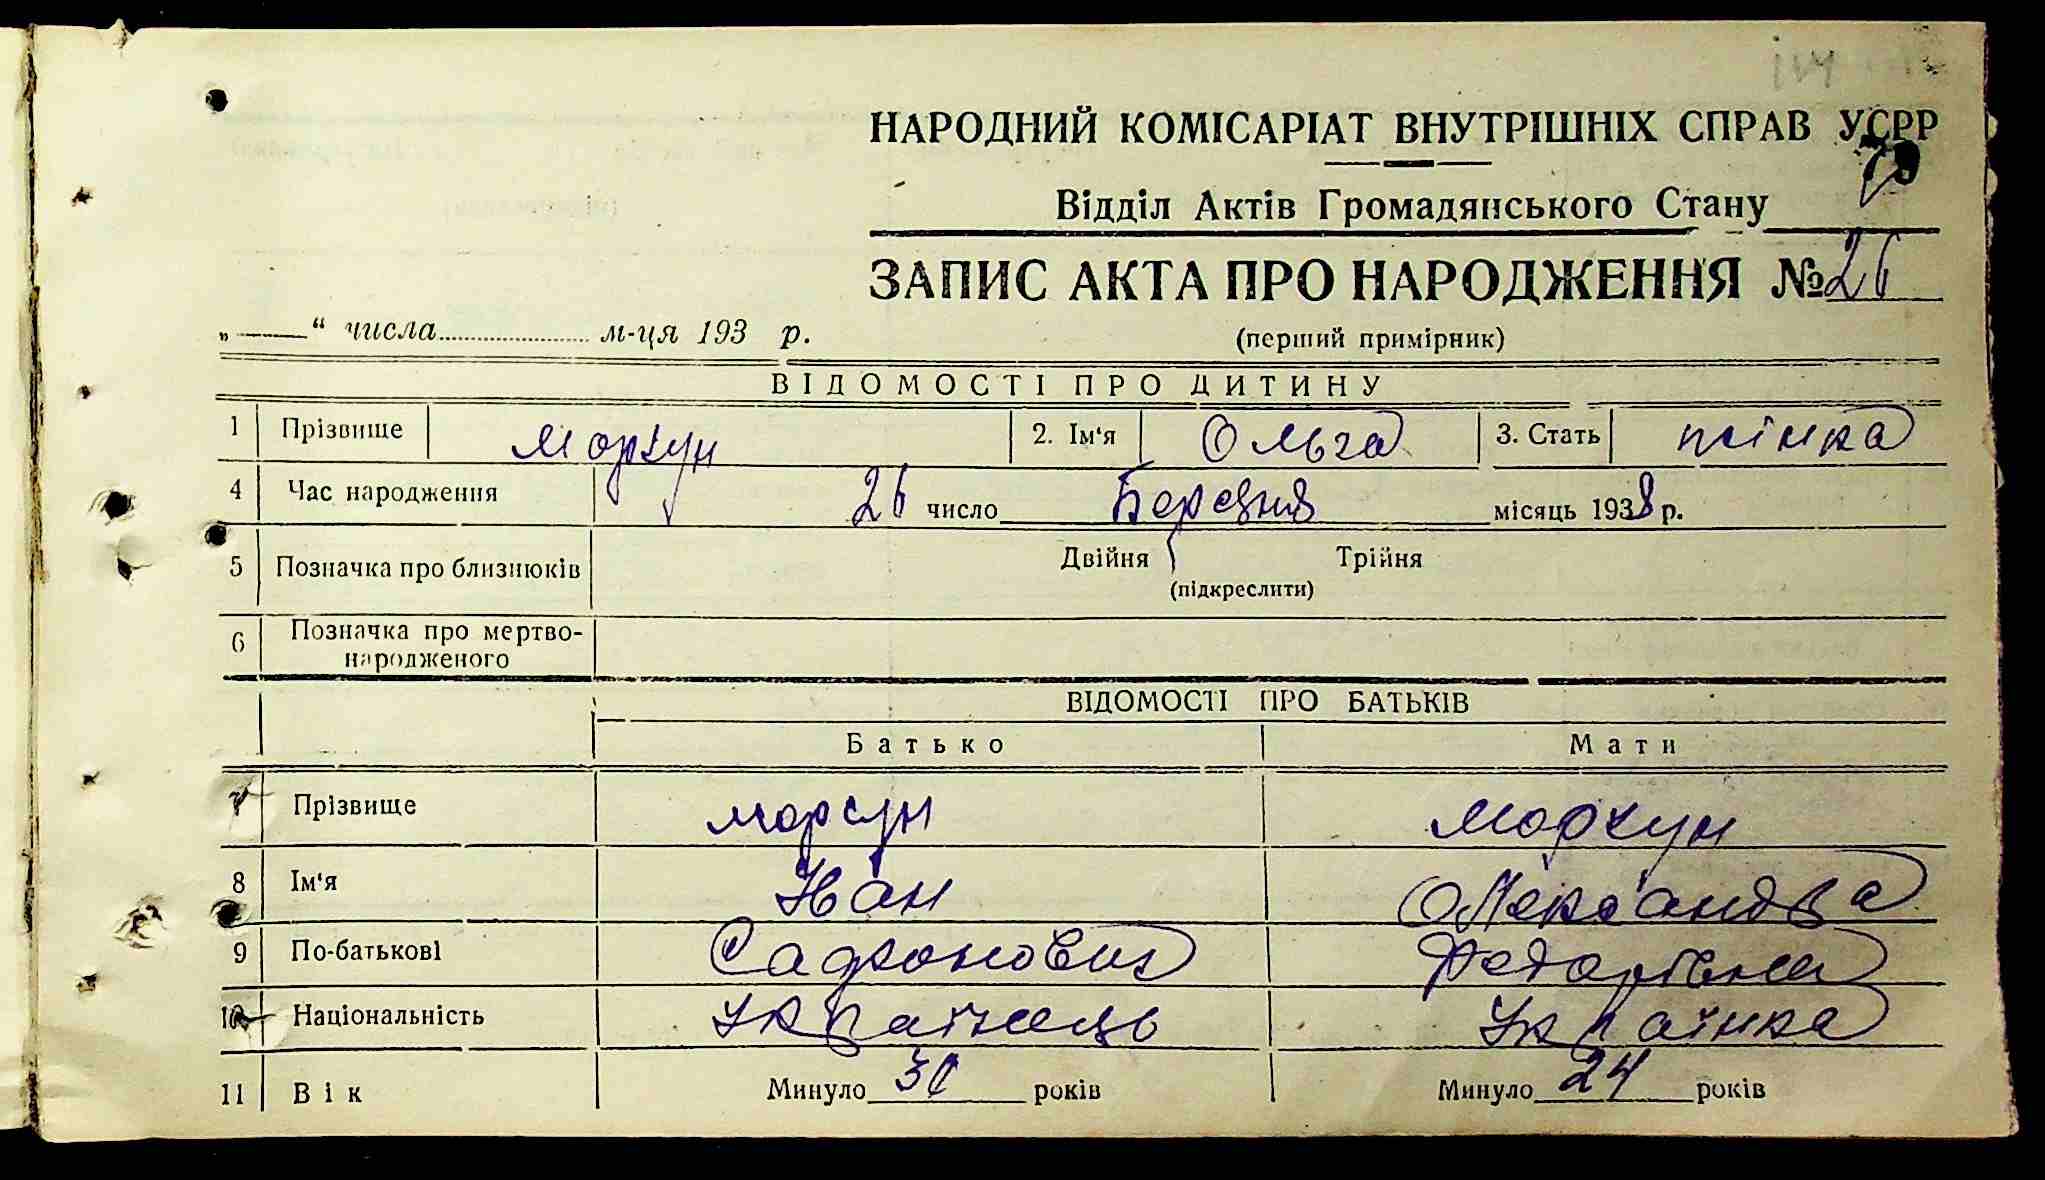 НАРОДНИЙ КОМІСАРІАТ ВНУТРІШНІХ СПРАВ УСРР
79
Відділ Актів Громадянського Стану
ЗАПИС АКТА ПРО НАРОДЖЕННЯ №26
„ “ числа м-ця 193 р.
(перший примірник)
ВІДОМОСТІ ПРО ДИТИНУ
1 Прізвище Моргун 2. Ім'я Ольга 3. Стать жінка
4 Час народження 26 число Березня місяць 1938 р.
5 Позначка про близнюків Двійня Трійня
(підкреслити)
6 Позначка про мертво-
народженого
ВІДОМОСТІ ПРО БАТЬКІВ
Батько Мати
7 Прізвище Моргун Моргун
8 Ім'я Іван Олександра
9 По-батькові Сафонович Федорівна
10 Національність Українець Українка
11 Вік Минуло 30 років Минуло 24 років